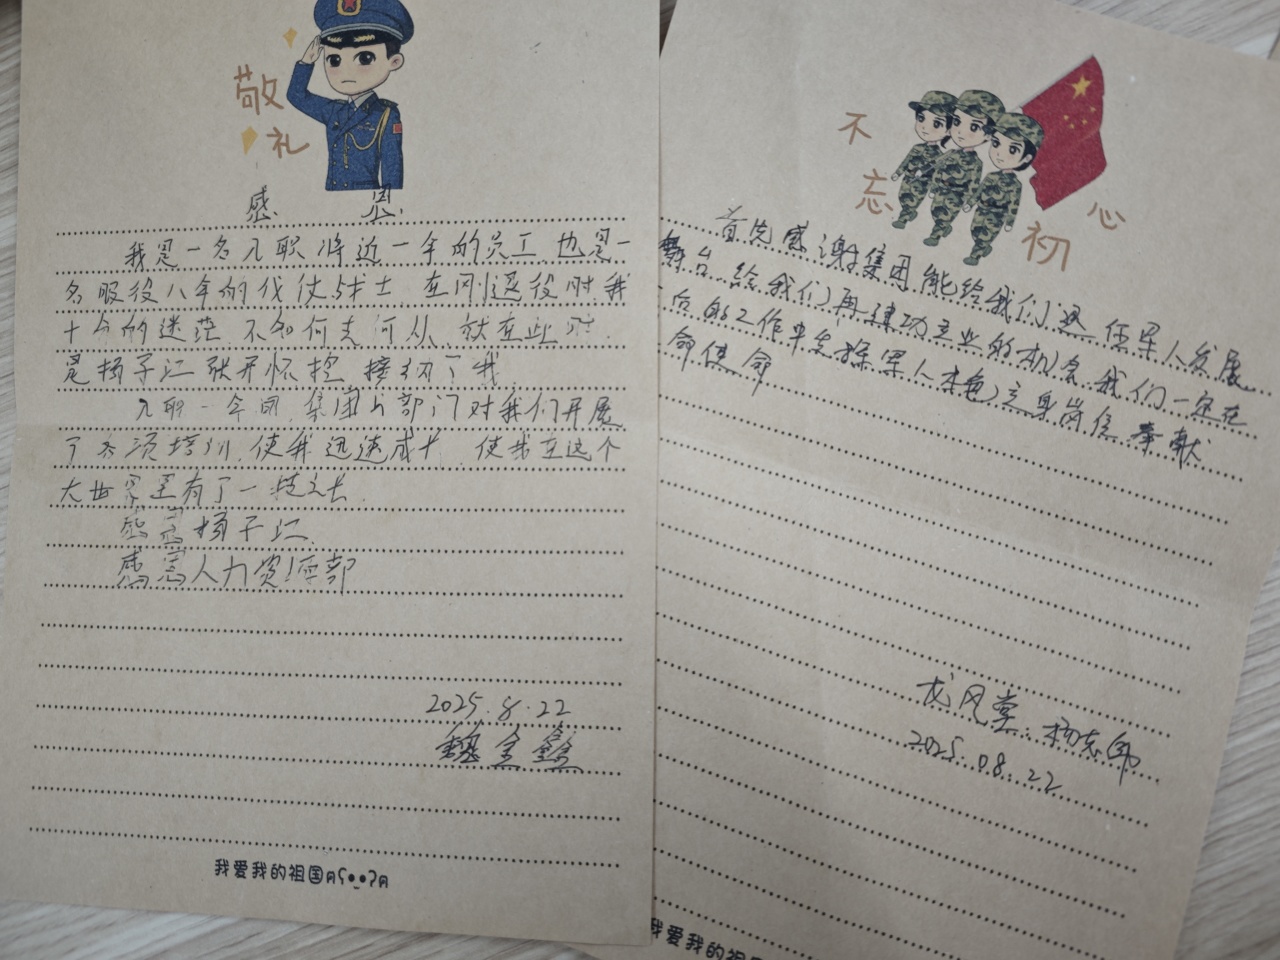 敬
礼
感 恩
我是一名入职将近一年的员工,也是一
名服役八年的仪仗战士,在刚退役时我
十分的迷茫,不知何去何从,就在此时,
是扬子江张开怀抱,接纳了我
入职一年间,集团各部门对我们开展
了各项培训,使我迅速成长,使我在这个
大世界里有了一技之长.
感恩扬子江.
感恩人力资源部
2025.8.22
魏金鑫
我爱我的祖国
不
忘
初
心
首先感谢集团能给我们退伍军人发展
舞台,给我们再建功立业的机会,我们一定在
后的工作中发挥军人本色,立身岗位,奉献
命使命
龙凤堂.杨志
2025.08.22
我爱我的祖国